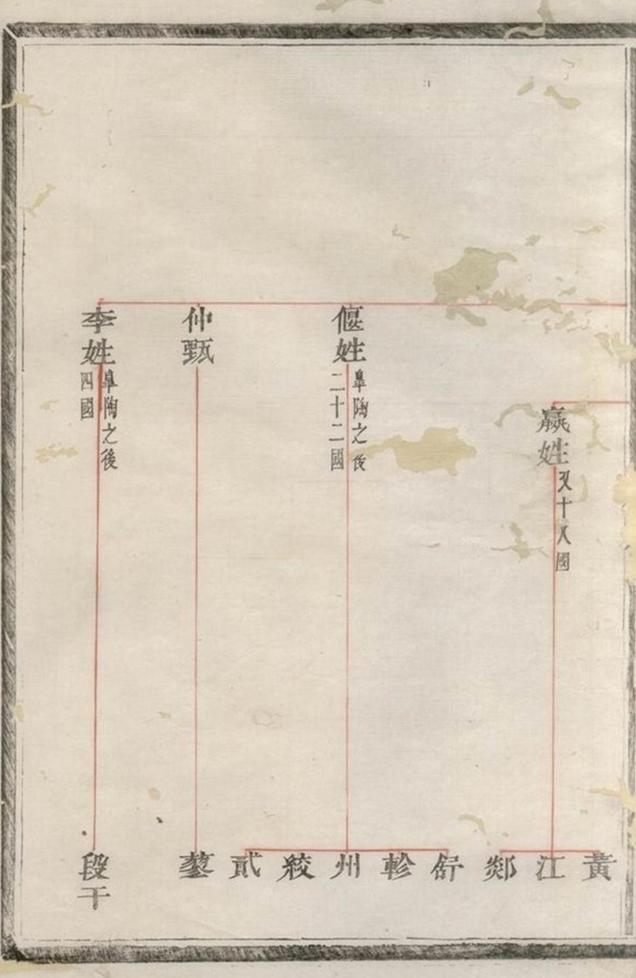 嬴姓
又十八國
偃姓
皋陶之後
二十二國
仲甄
李姓
皋陶之後
四國
黃
江
郯
舒
軫
州
絞
貳
蓼
段干